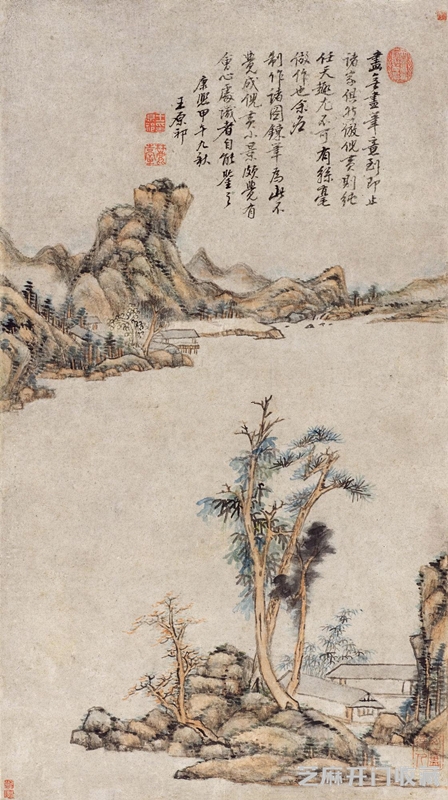 畫畫筆意到即止
諸家俱倪黃則純
任天趣尤不可有絲毫
做作也余
制作諸圖鍊筆為此不
覺成倪黃小景頗覺有
會心處識者自能鑒之
康熙甲午九秋
王原祁
芝麻开门收藏